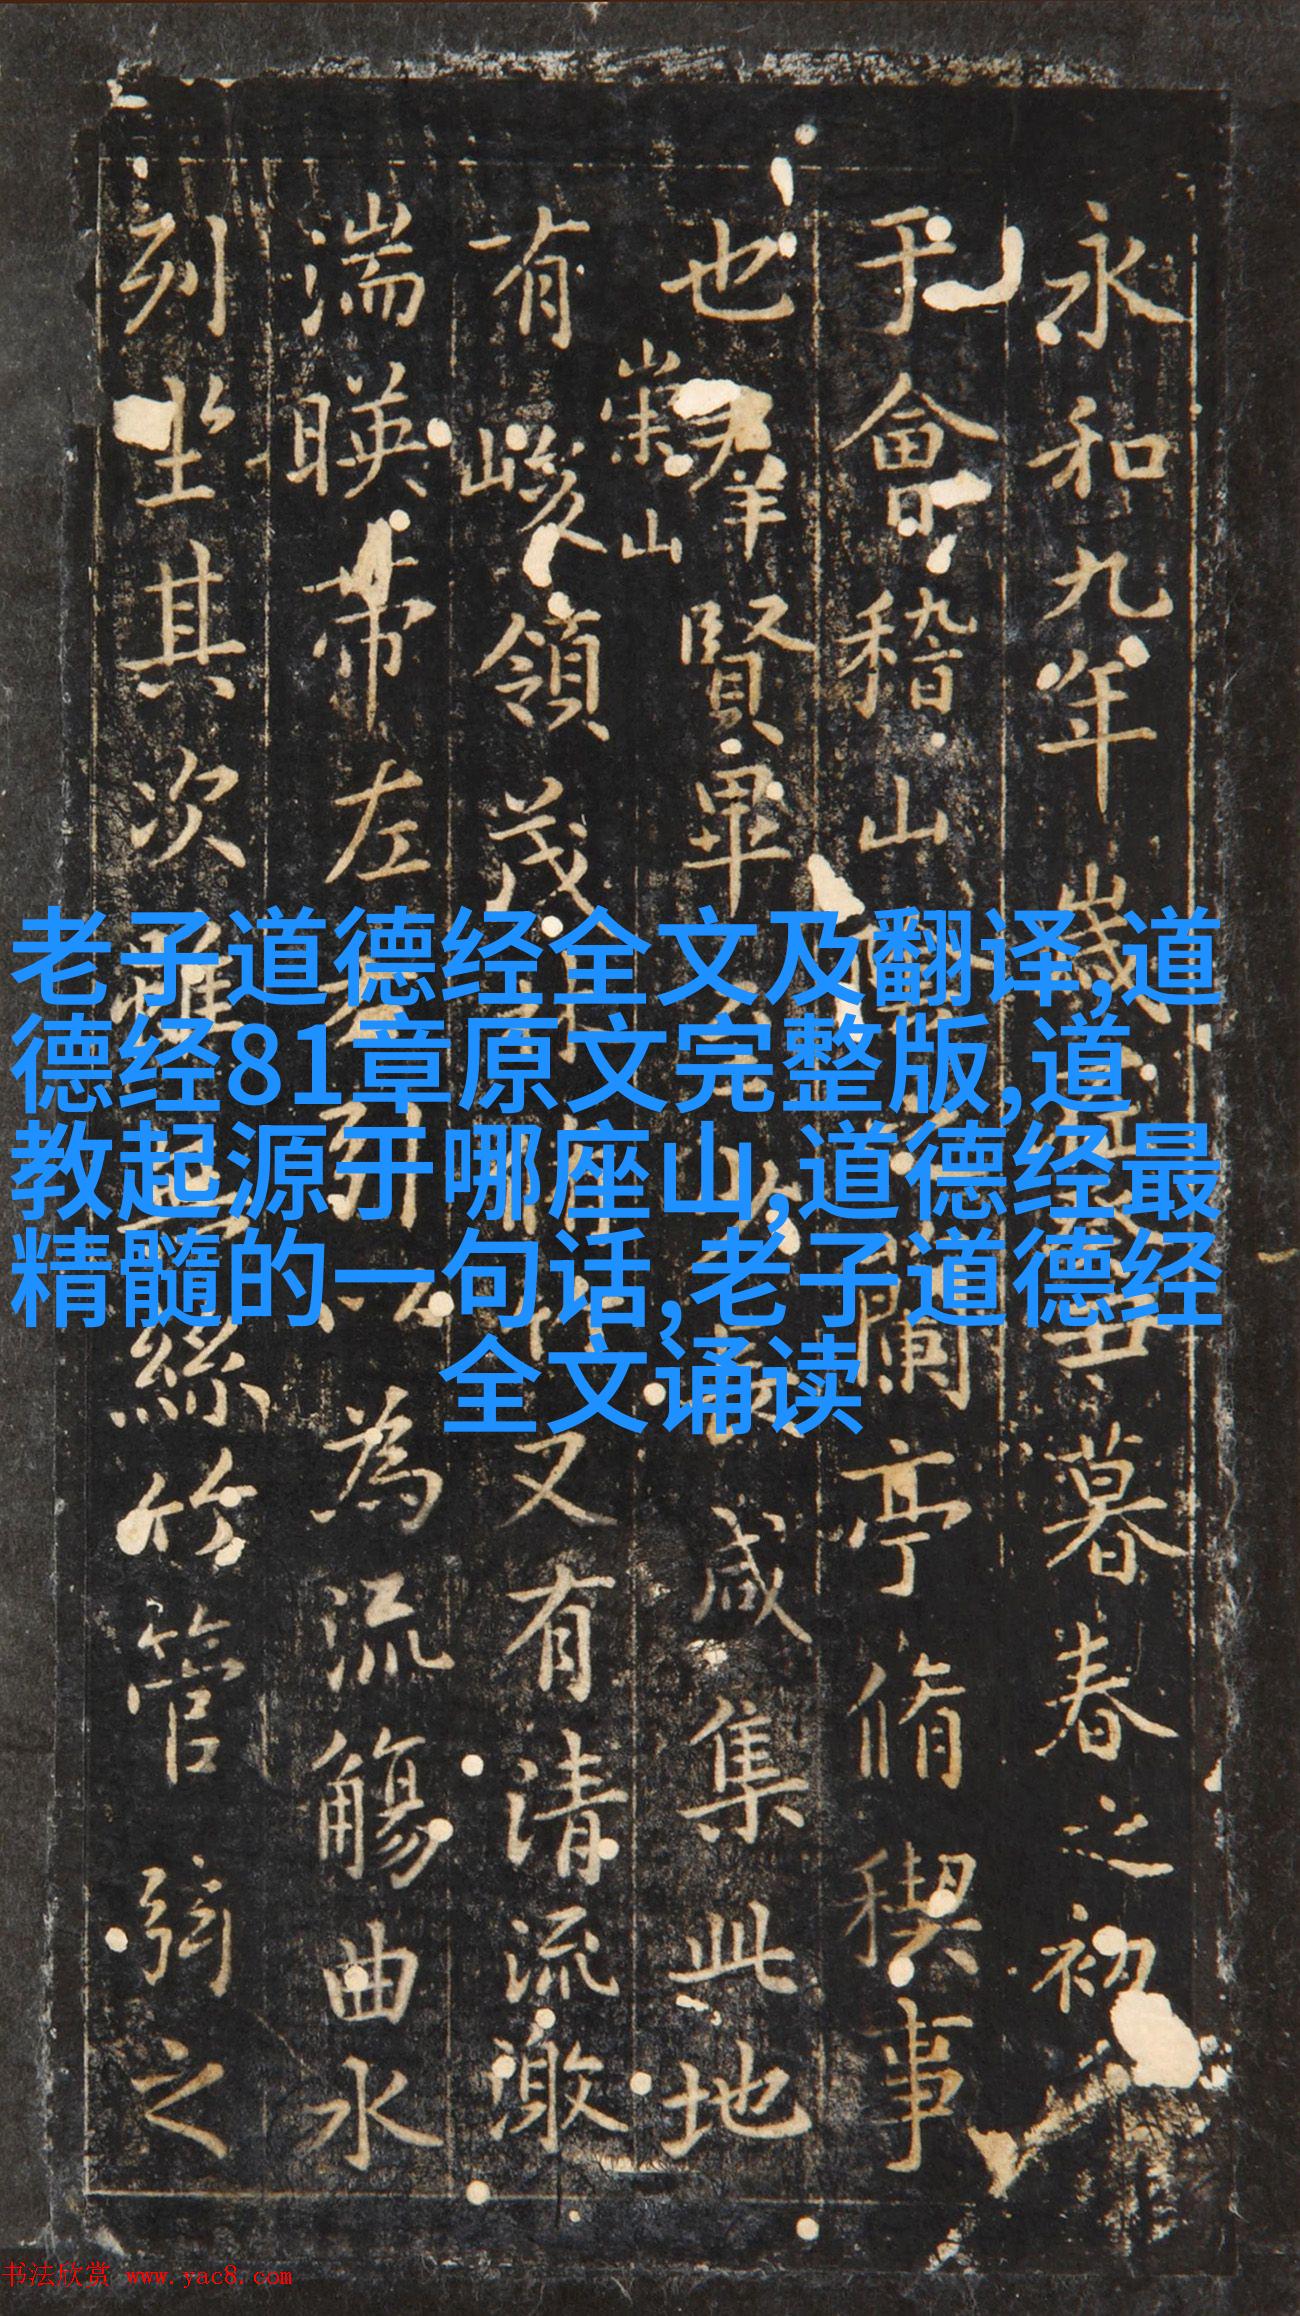 永和九年歲在癸丑暮春之初
于會稽山陰之蘭亭脩稧事
也羣賢畢至少長咸集此地
崇山
有峻領茂林脩竹又有清流激
湍暎帶左右引以為流觴曲水
列坐其次雖無絲竹管弦之
老子道德经全文及翻译,道
德经81章原文完整版,道
教起源于哪座山,道德经最
精髓的一句话,老子道德经
全文诵读
书法欣赏 www.yac8.com